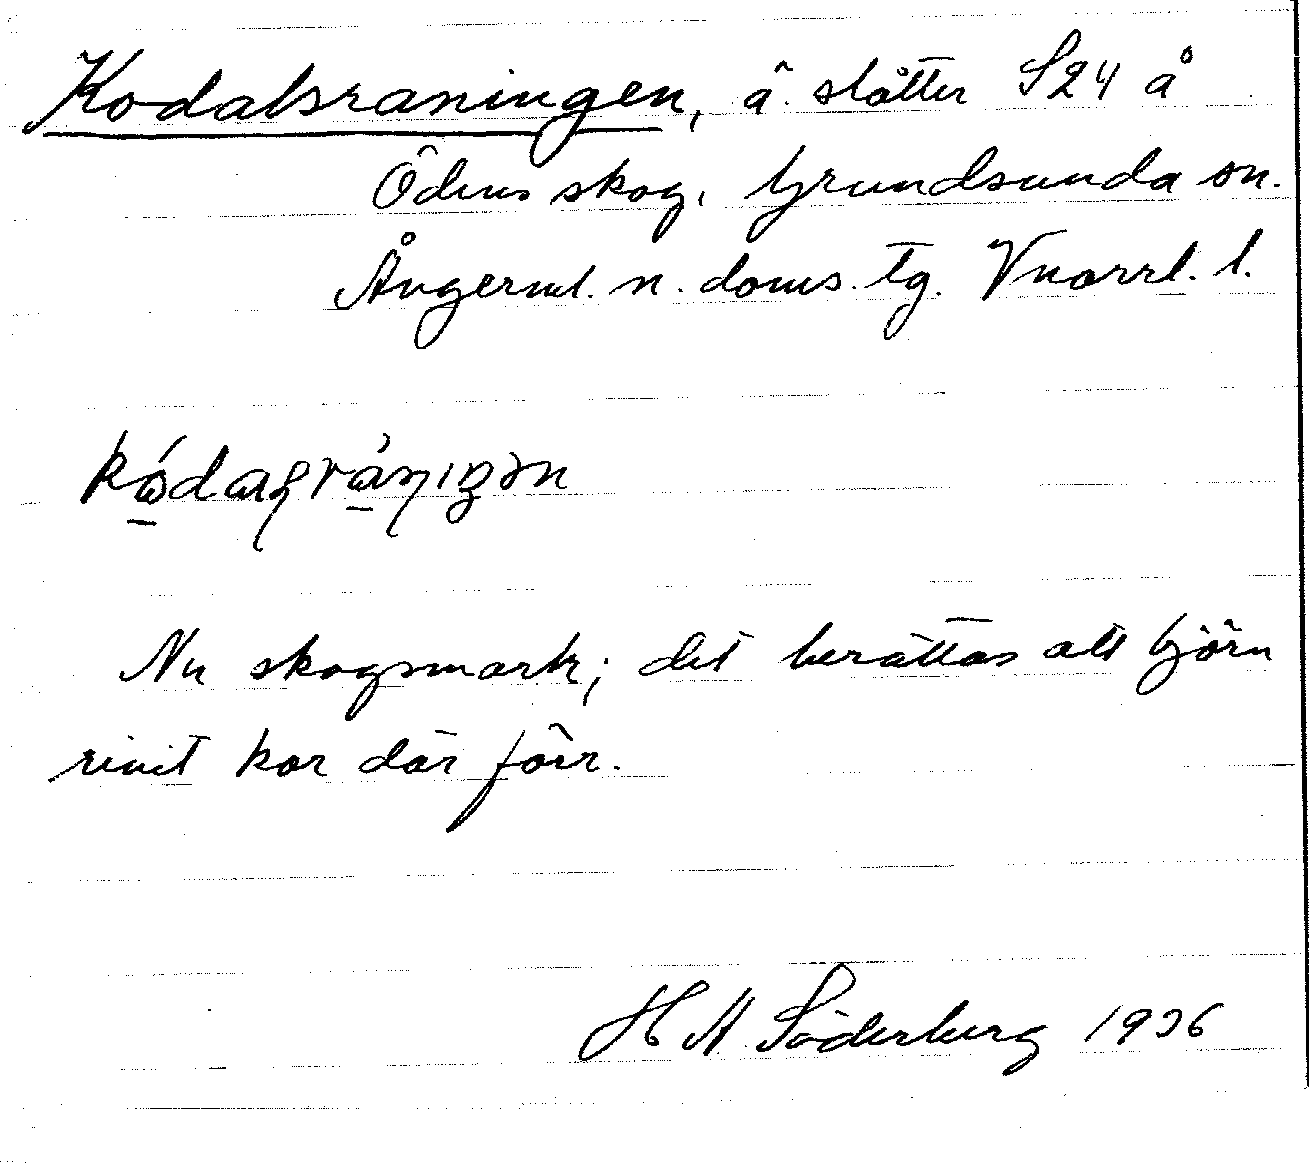 Kodalsraningen, ä. slåtter S24 å
Ödens skog, Grundsunda sn.
Ångerml. n. doms. tg. Vnorrl. l.
Nu skogsmark; det berättas att björn
rivit kor där förr.
H A Söderberg 1936